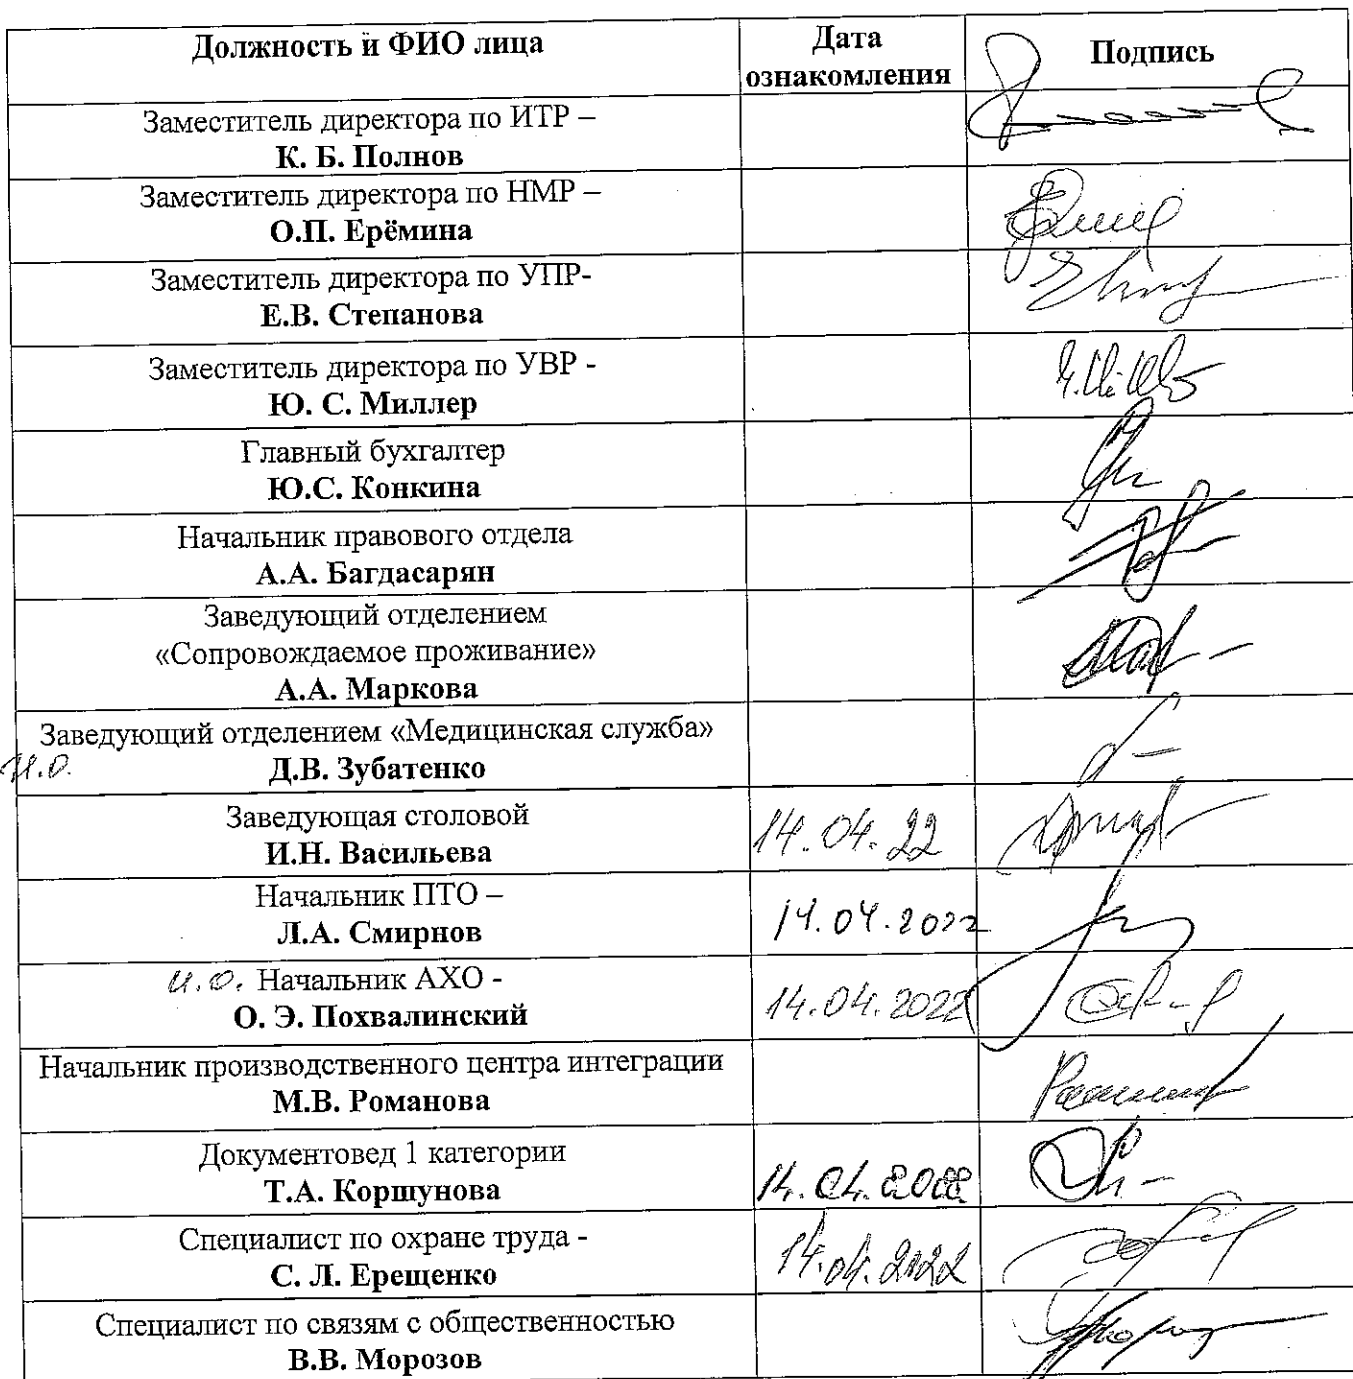 Должность и ФИО лица
Дата ознакомления
Подпись
Заместитель директора по ИТР –
К. Б. Полнов
Заместитель директора по НМР –
О.П. Ерёмина
Заместитель директора по УПР-
Е.В. Степанова
Заместитель директора по УВР -
Ю. С. Миллер
Главный бухгалтер
Ю.С. Конкина
Начальник правового отдела
А.А. Багдасарян
Заведующий отделением
«Сопровождаемое проживание»
А.А. Маркова
Заведующий отделением «Медицинская служба»
И.О. Д.В. Зубатенко
Заведующая столовой
И.Н. Васильева
14.04.22
Начальник ПТО –
Л.А. Смирнов
14.04.2022
и.о. Начальник АХО -
О. Э. Похвалинский
14.04.2022
Начальник производственного центра интеграции
М.В. Романова
Документовед 1 категории
Т.А. Коршунова
14.04.2022
Специалист по охране труда -
С. Л. Ерещенко
14.04.2022
Специалист по связям с общественностью
В.В. Морозов